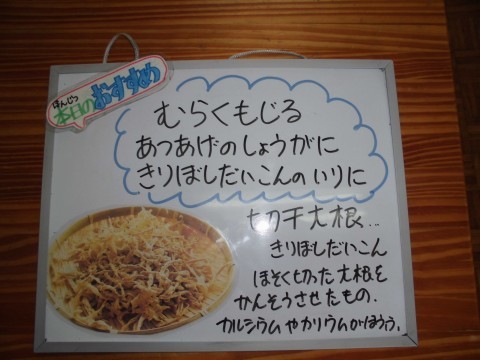 ほんじつ
本日のおすすめ
むらくもじる
あつあげのしょうがに
きりぼしだいこんのいりに
切干大根…
きりぼしだいこん
ほそく切った大根を
かんそうさせたもの.
カルシウムやカリウムがほうふ.